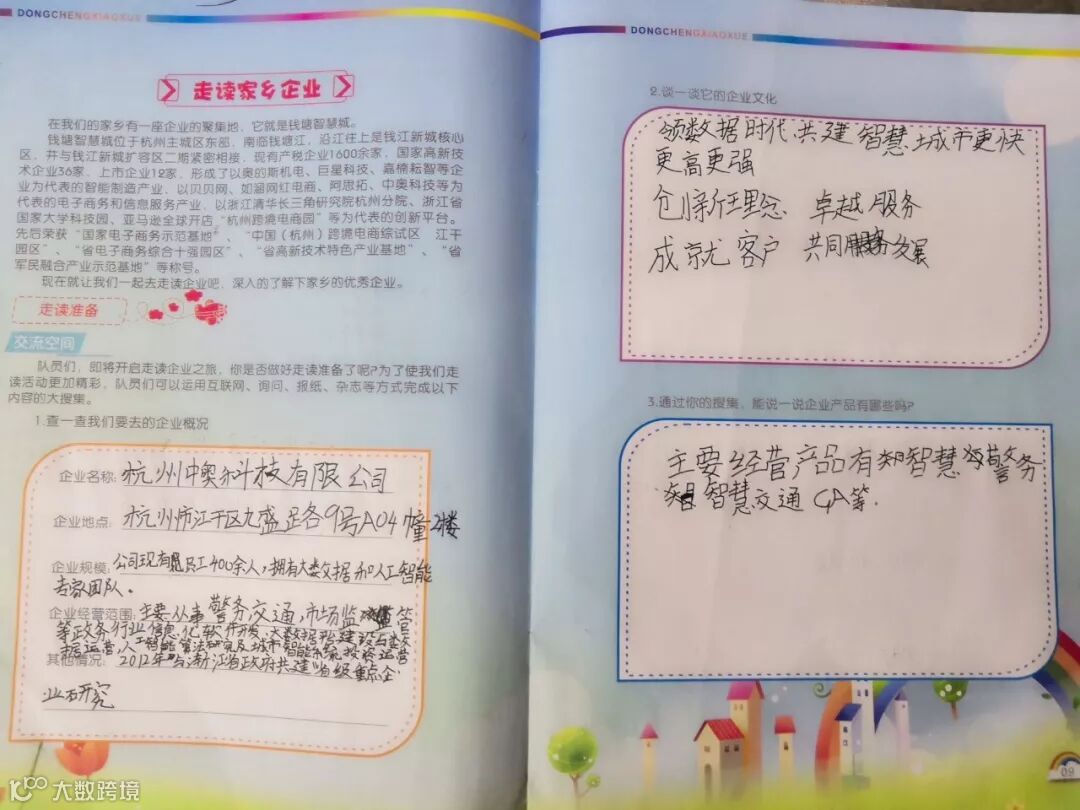 DONGCHENGXIAOXUE
走读家乡企业
在我们的家乡有一座企业的聚集地，它就是钱塘智慧城。
钱塘智慧城位于杭州主城区东部，南临钱塘江，沿江往上是钱江新城核心
区，并与钱江新城扩容区二期紧密相接，现有产税企业1600余家，国家高新技
术企业36家，上市企业12家，形成了以奥的斯机电、巨星科技、嘉楠耘智等企
业为代表的智能制造产业，以贝贝网、如涵网红电商、阿思拓、中奥科技等为
代表的电子商务和信息服务产业，以浙江清华长三角研究院杭州分院、浙江省
国家大学科技园、亚马逊全球开店“杭州跨境电商园”等为代表的创新平台。
先后荣获“国家电子商务示范基地”、“中国（杭州）跨境电商综试区 江干
园区”、“省电子商务综合十强园区”、“省高新技术特色产业基地”、“省
军民融合产业示范基地”等称号。
现在就让我们一起去走读企业吧，深入的了解下家乡的优秀企业。
走读准备
交流空间
队员们，即将开启走读企业之旅，你是否做好走读准备了呢?为了使我们走
读活动更加精彩，队员们可以运用互联网、询问、报纸、杂志等方式完成以下
内容的大搜集。
1.查一查我们要去的企业概况
企业名称: 杭州中奥科技有限公司
企业地点: 杭州市江干区九盛路9号A04幢2楼
企业规模: 公司现有员工400余人，拥有大数据和人工智能
专家团队。
企业经营范围: 主要从事警务交通，市场监管
等政务行业信息化软件开发，大数据建设与数
据运营，人工智能算法研究及城市智能系统投资运营
其他情况: 2012年与浙江省政府共建省级重点企
业研究
DONGCHENGXIAOXUE
2.谈一谈它的企业文化
领数据时代共建智慧城市更快
更高更强
创新理念 卓越服务
成就客户 共同发展
3.通过你的搜集，能说一说企业产品有哪些吗?
主要经营产品有智慧警务
智慧交通 GA等.
09
大数跨境